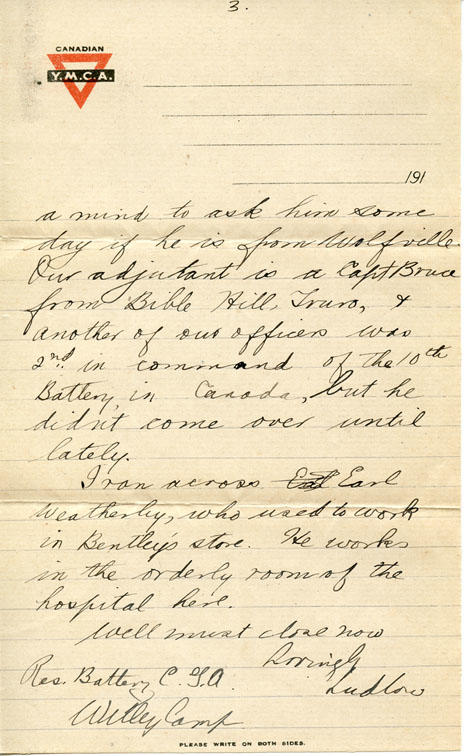 3.
CANADIAN
Y.M.C.A.
191
a mind to ask him some
day if he is from Wolfville.
Our adjutant is a Capt Bruce
from Bible Hill, Truro, &
another of our officers was
2nd. in command of the 10th
Battery in Canada, but he
didn't come over until
lately.
I ran across Earl
Weatherby, who used to work
in Bentley's store. He works
in the orderly room of the
hospital here.
Well must close now
Lovingly
Ludlow
Res. Battery C.F.A.
Witley Camp
PLEASE WRITE ON BOTH SIDES.